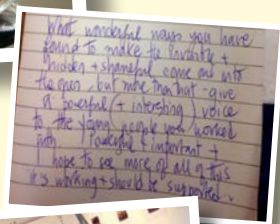 What wonderful ways you have
found to make the invisible +
hidden + shameful come out into
the open, but more than that - give
a powerful (+ interesting) voice
to the young people you worked
with. Powerful + important +
I hope to see more of all of this
it is working + should be supported.